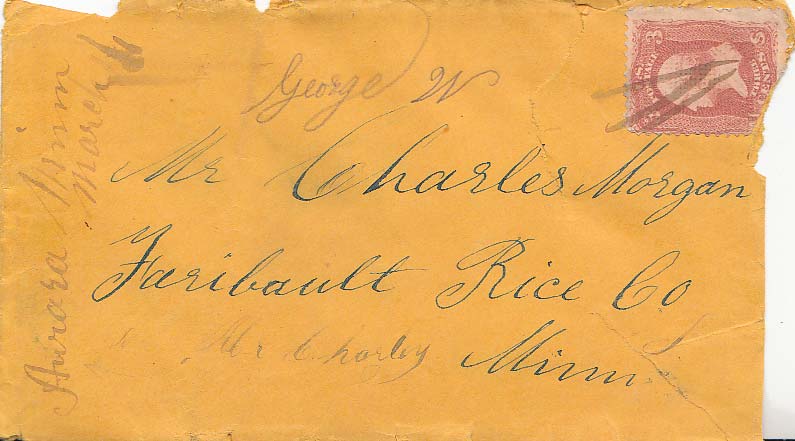 Aurora Minn
March
George W
Mr Charles Morgan
Faribault Rice Co
Mr Charley
Minn
3